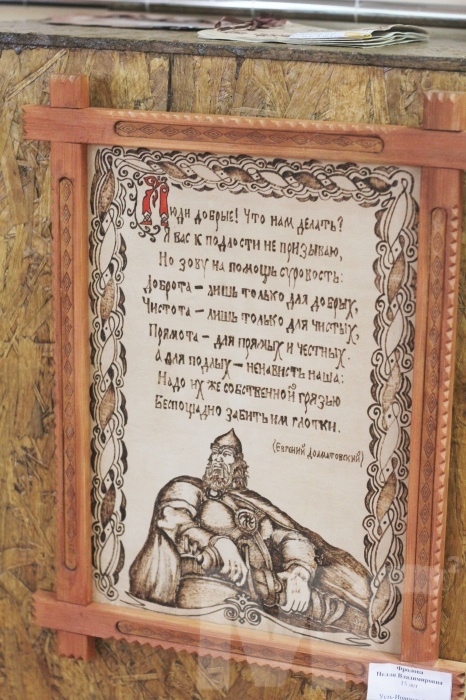 Люди добрые! Что нам делать?
Я вас к подлости не призываю,
Но зову на помощь суровость:
Доброта – лишь только для добрых,
Чистота – лишь только для чистых,
Прямота – для прямых и честных.
А для подлых – ненависть наша:
Надо их же собственной грязью
Беспощадно забить им глотки.
(Евгений Долматовский)
Фролова
Нелли Владимировна
15 лет